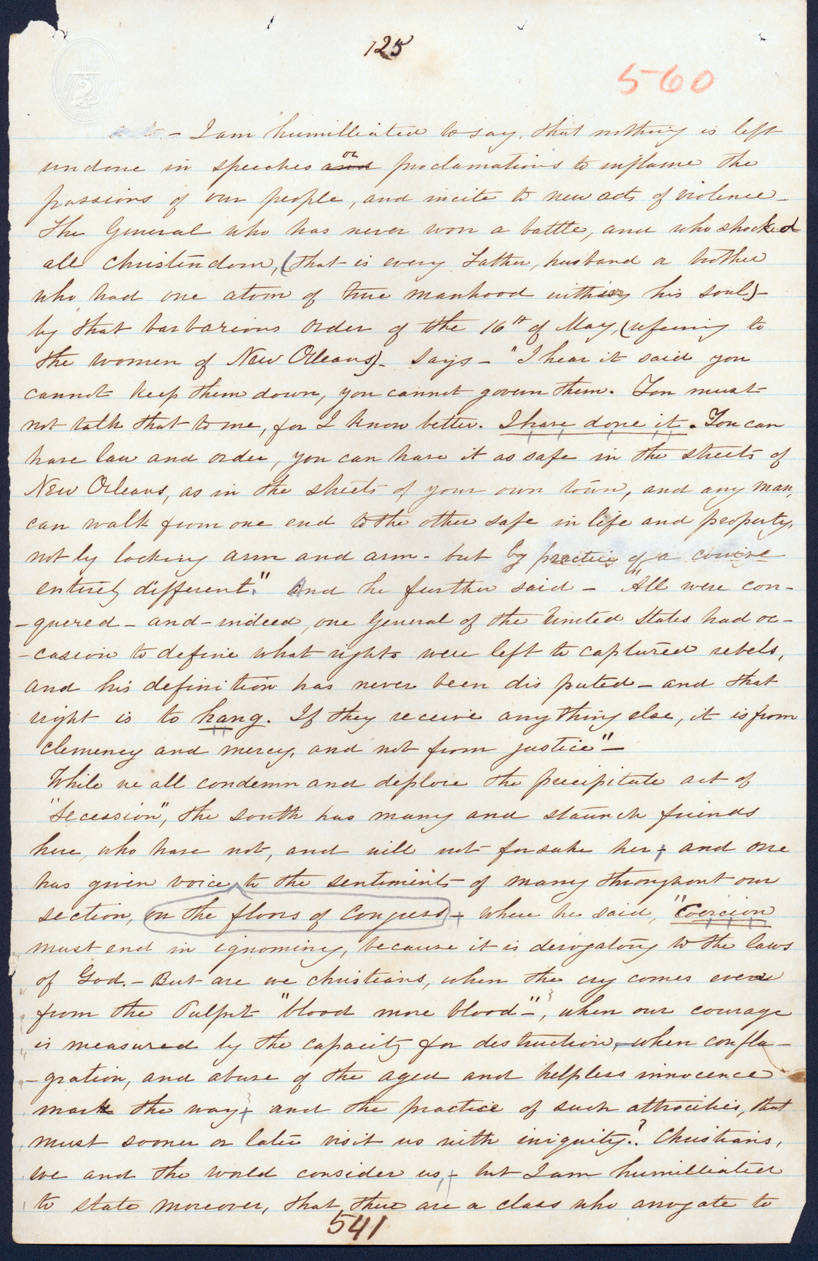 125
560
- I am humilliated to say, that nothing is left
undone in speeches and or proclamations to inflame the
passions of our people, and incite to new acts of violence -
The General who has never won a battle, and who shocked
all Christendom, (that is every Father, husband or brother
who had one atom of true manhood within his soul) -
by that barbarious order of the 16th of May, (refering to
the women of New Orleans) - says - "I hear it said you
cannot keep them down, you cannot govern them. You must
not talk that to me, for I know better. I have done it. You can
have law and order, you can have it as safe in the streets of
New Orleans, as in the streets of your own town, and any man,
can walk from one end to the other safe in life and property,
not by locking arm and arm - but by practice of a course
entirely different." And he further said - "All were con-
-quered - and - indeed, one General of the United States had oc-
-casion to define what rights were left to captured rebels,
and his definition has never been dis puted - and that
right is to hang. If they receive any thing else, it is from
clemency and mercy, and not from justice" -
While we all condemn and deplore the precipitate act of
"Secession", the south has many and staunch friends
here, who have not, and will not forsake her, and one
has given voice to the sentiments of many throughout our
section, on the floors of Congress, where he said, "Coercion
must end in ignominy, because it is derogatory to the laws
of God. - But are we christians, when the cry comes even
from the Pulpit "blood more blood -", when our courage
is measured by the capacity for destruction, - when confla-
-gration, and abuse of the aged and helpless innocence
mark the way, and the practice of such attrocities, that
must sooner or later visit us with iniquity? Christians,
we and the world consider us, but I am humilliated
to state moreover, that there are a class who arrogate to
541